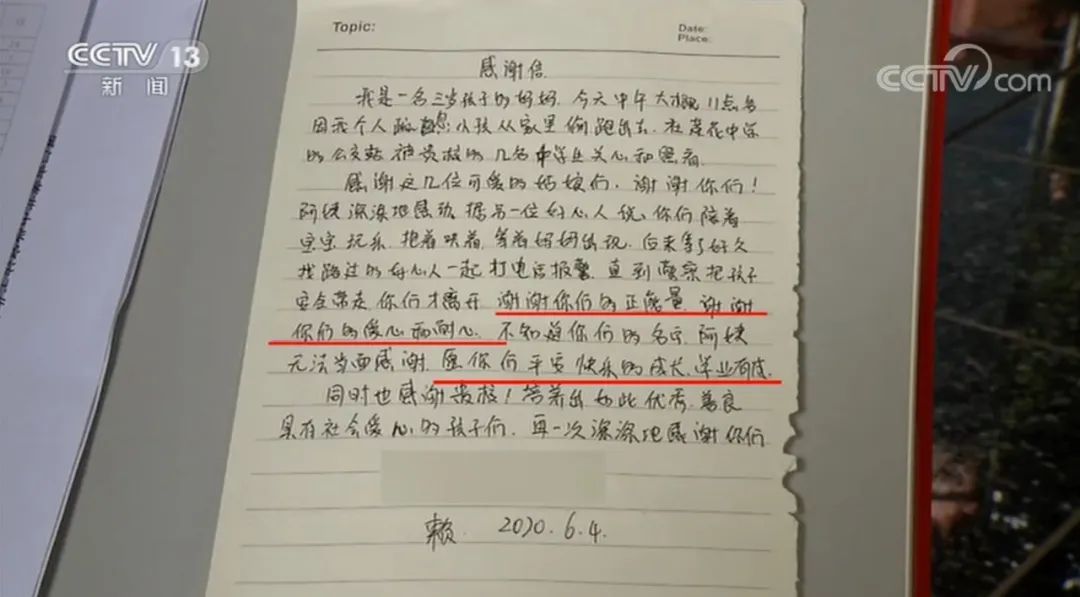 CCTV 13
新闻
CCTV.com
Topic:
Date:
Place:
感谢信
我是一名三岁孩子的妈妈。今天中午大概11点多
因我个人疏忽小孩从家里偷跑出去。在莲花中学
的公交站被贵校的几名中学生关心和照看。
感谢这几位可爱的姑娘们。谢谢你们！
阿姨深深地感动。据另一位好心人说，你们陪着
宝宝玩乐。抱着哄着。等着妈妈出现。后来等了好久
找路过的好心人一起打电话报警。直到警察把孩子
安全带走你们才离开。谢谢你们的正能量。谢谢
你们的爱心和耐心。不知道你们的名字。阿姨
无法当面感谢。愿你们平安快乐的成长。学业有成。
同时也感谢贵校！培养出如此优秀。善良
具有社会爱心的孩子们。再一次深深地感谢你们
赖 2020.6.4.